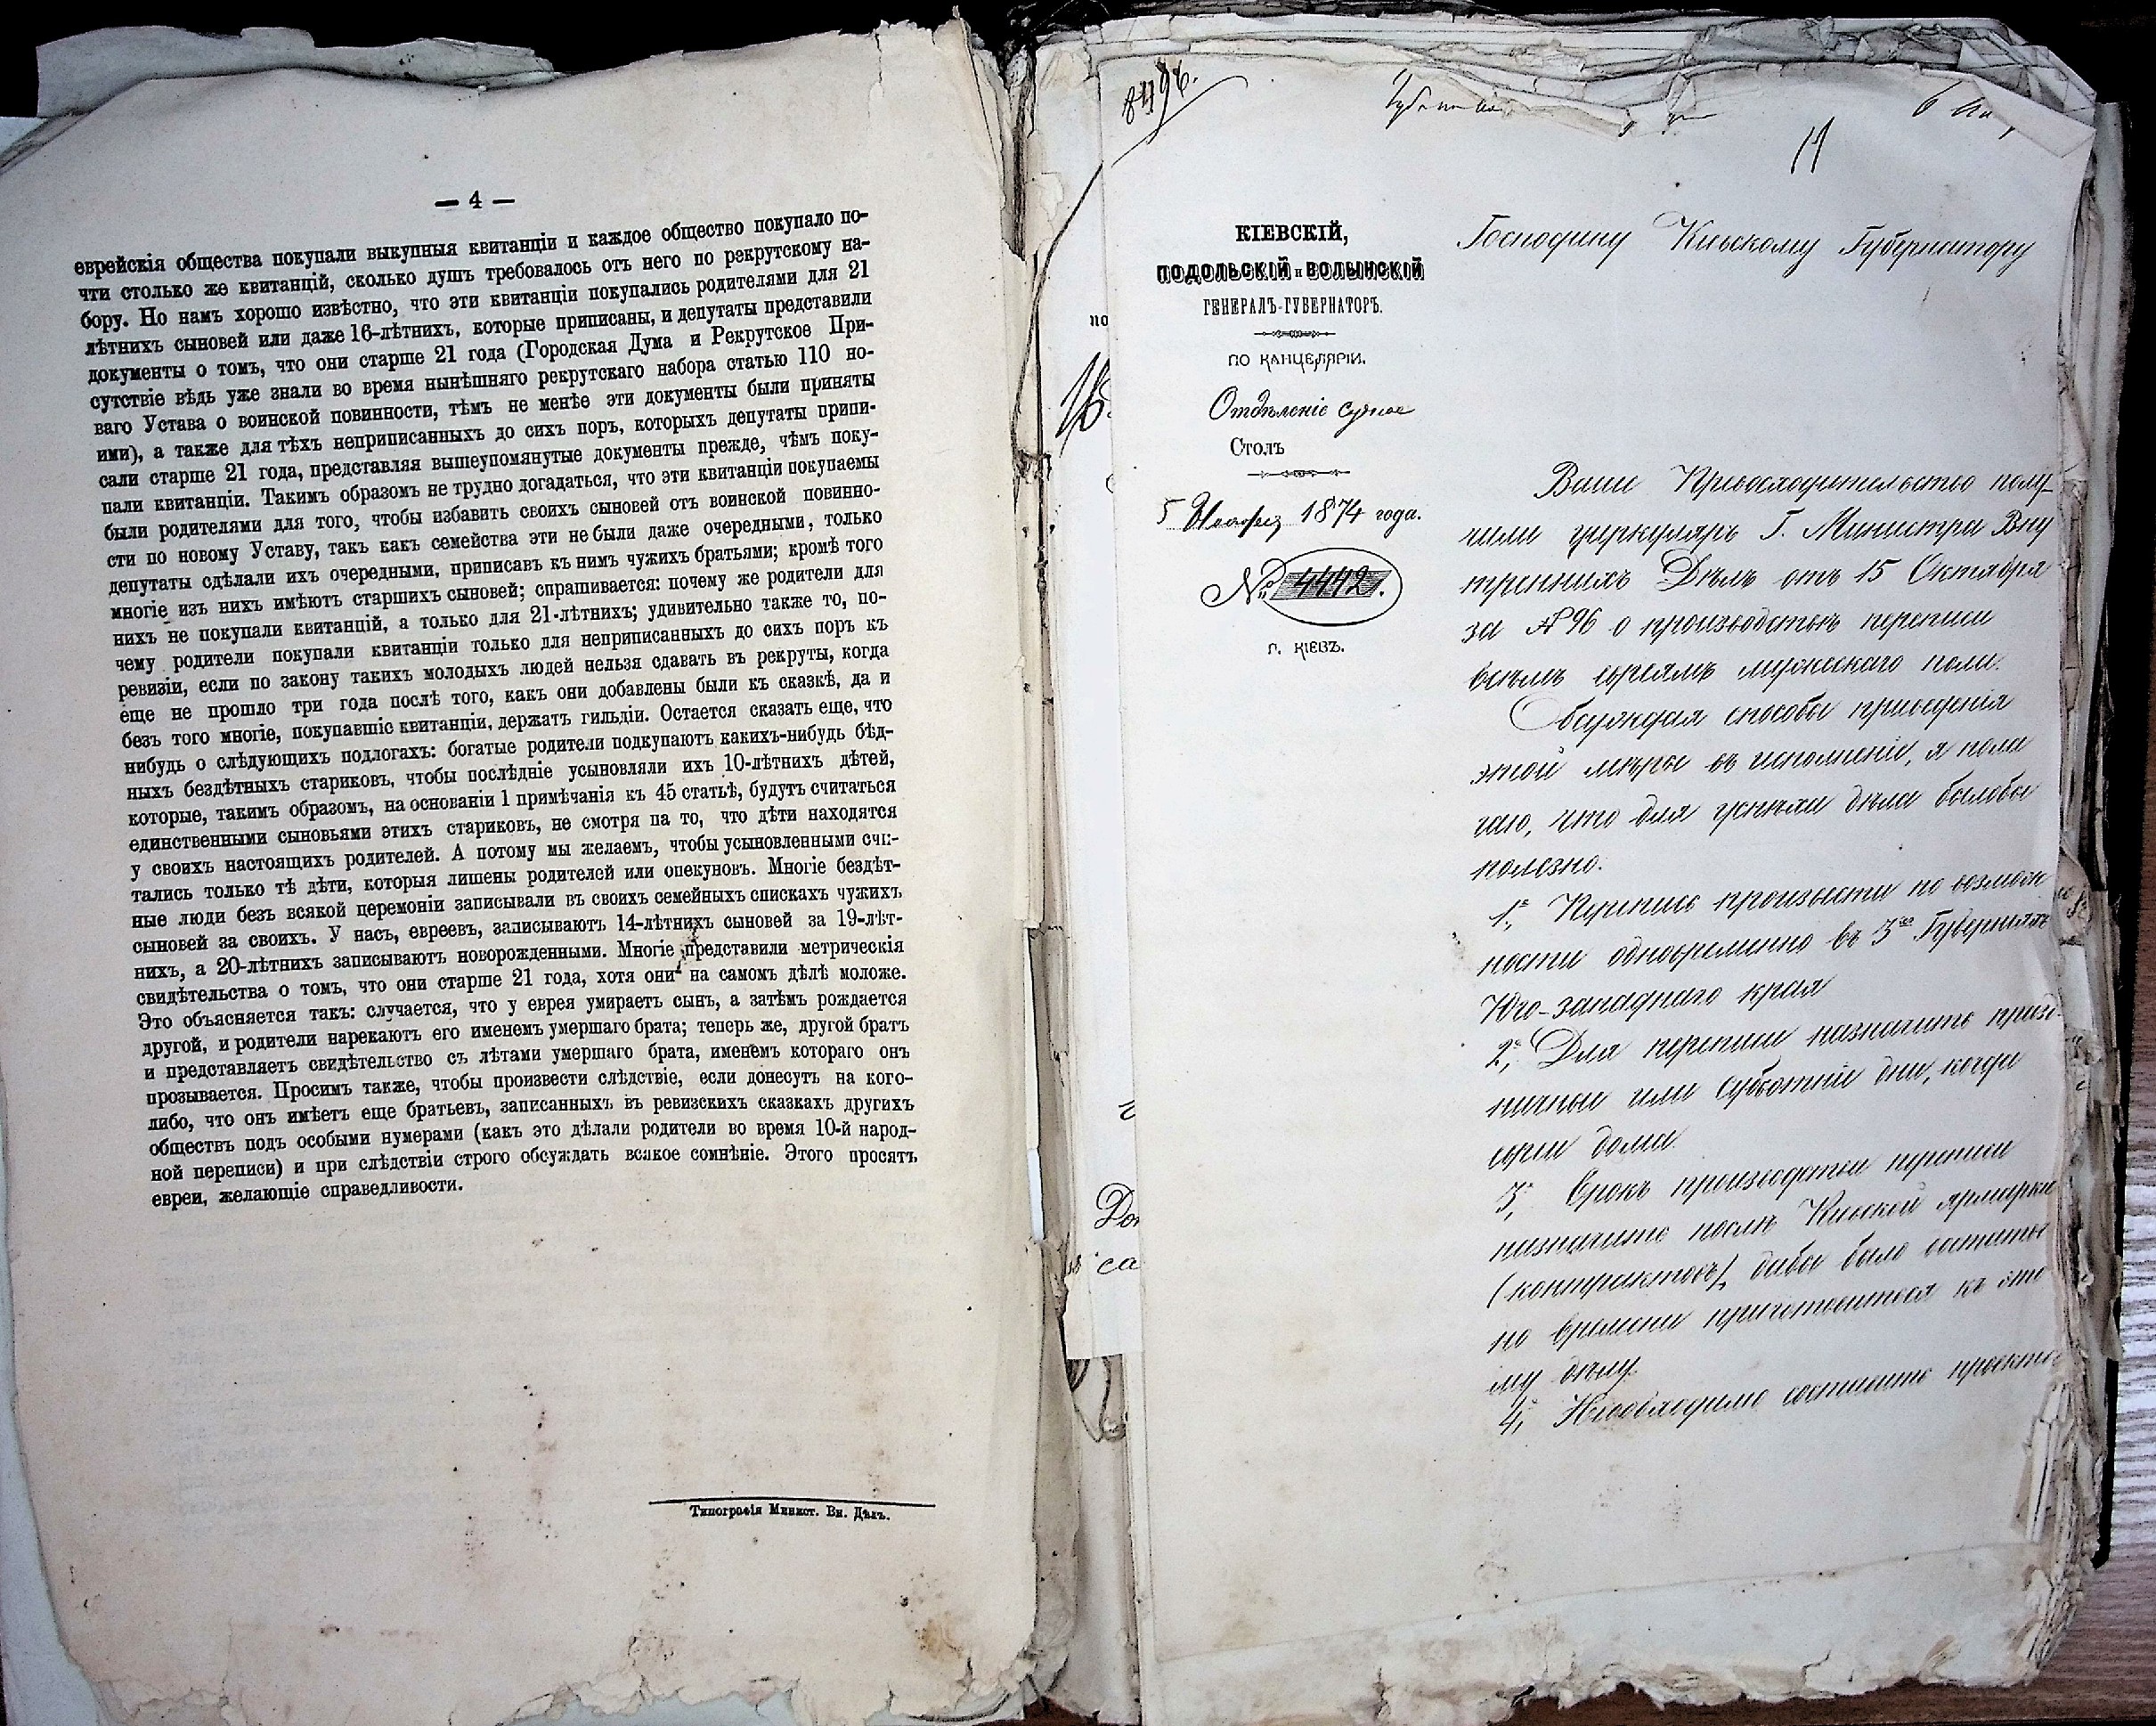 — 4 —
еврейскія общества покупали выкупныя квитанціи и каждое общество покупало по-
чти столько же квитанцій, сколько душъ требовалось отъ него по рекрутскому на-
бору. Но намъ хорошо извѣстно, что эти квитанціи покупались родителями для 21
лѣтнихъ сыновей или даже 16-лѣтнихъ, которые приписаны, и депутаты представили
документы о томъ, что они старше 21 года (Городская Дума и Рекрутское При-
сутствіе вѣдь уже знали во время нынѣшняго рекрутскаго набора статью 110 но-
ваго Устава о воинской повинности, тѣмъ не менѣе эти документы были приняты
ими), а также для тѣхъ неприписанныхъ до сихъ поръ, которыхъ депутаты припи-
сали старше 21 года, представляя вышеупомянутые документы прежде, чѣмъ поку-
пали квитанціи. Такимъ образомъ не трудно догадаться, что эти квитанціи покупаемы
были родителями для того, чтобы избавить своихъ сыновей отъ воинской повинно-
сти по новому Уставу, такъ какъ семейства эти не были даже очередными, только
депутаты сдѣлали ихъ очередными, приписавъ къ нимъ чужихъ братьями; кромѣ того
многіе изъ нихъ имѣютъ старшихъ сыновей; спрашивается: почему же родители для
нихъ не покупали квитанцій, а только для 21-лѣтнихъ; удивительно также то, по-
чему родители покупали квитанціи только для неприписанныхъ до сихъ поръ къ
ревизіи, если по закону такихъ молодыхъ людей нельзя сдавать въ рекруты, когда
еще не прошло три года послѣ того, какъ они добавлены были къ сказкѣ, да и
безъ того многіе, покупавшіе квитанціи, держатъ гильдіи. Остается сказать еще, что
нибудь о слѣдующихъ подлогахъ: богатые родители подкупаютъ какихъ-нибудь бѣд-
ныхъ бездѣтныхъ стариковъ, чтобы послѣдніе усыновляли ихъ 10-лѣтнихъ дѣтей,
которые, такимъ образомъ, на основаніи 1 примѣчанія къ 45 статьѣ, будутъ считаться
единственными сыновьями этихъ стариковъ, не смотря на то, что дѣти находятся
у своихъ настоящихъ родителей. А потому мы желаемъ, чтобы усыновленными счи-
тались только тѣ дѣти, которыя лишены родителей или опекуновъ. Многіе бездѣт-
ные люди безъ всякой церемоніи записывали въ своихъ семейныхъ спискахъ чужихъ
сыновей за своихъ. У насъ, евреевъ, записываютъ 14-лѣтнихъ сыновей за 19-лѣт-
нихъ, а 20-лѣтнихъ записываютъ новорожденными. Многіе представили метрическія
свидѣтельства о томъ, что они старше 21 года, хотя они на самомъ дѣлѣ моложе.
Это объясняется такъ: случается, что у еврея умираетъ сынъ, а затѣмъ рождается
другой, и родители нарекаютъ его именемъ умершаго брата; теперь же, другой братъ
и представляетъ свидѣтельство съ лѣтами умершаго брата, именемъ котораго онъ
прозывается. Просимъ также, чтобы произвести слѣдствіе, если донесутъ на кого-
либо, что онъ имѣетъ еще братьевъ, записанныхъ въ ревизскихъ сказкахъ другихъ
обществъ подъ особыми нумерами (какъ это дѣлали родители во время 10-й народ-
ной переписи) и при слѣдствіи строго обсуждать всякое сомнѣніе. Этого просятъ
евреи, желающіе справедливости.
Типографія Минист. Вн. Дѣлъ.
КІЕВСКІЙ,
ПОДОЛЬСКІЙ и ВОЛЫНСКІЙ
ГЕНЕРАЛЪ-ГУБЕРНАТОРЪ.
ПО КАНЦЕЛЯРІИ.
Отдѣленіе
Столъ
5 Ноября 1874 года.
№ 4442.
г. КІЕВЪ.
Господину Кіевскому Губернатору
Ваше Превосходительство полу-
чили циркуляръ Г. Министра Вну
треннихъ Дѣлъ отъ 15 Октября
за № 96 о производствѣ переписи
всѣмъ евреямъ мужескаго пола.
Обсуждая способы приведенія
этой мѣры въ исполненіе, я пола
гаю, что для успѣха дѣла былобы
полезно.
1, Перепись произвести по возмож
ности одновременно въ 3хъ Губерніяхъ
Юго-западнаго края
2, Для переписи назначить празд-
ничные или субботніе дни, когда
евреи дома.
3, Срокъ производства переписи
назначить послѣ Кіевской ярмарки
(контрактовъ), дабы было достаточ
но времени приготовиться къ это
му дѣлу.
4, Необходимо составить проектъ